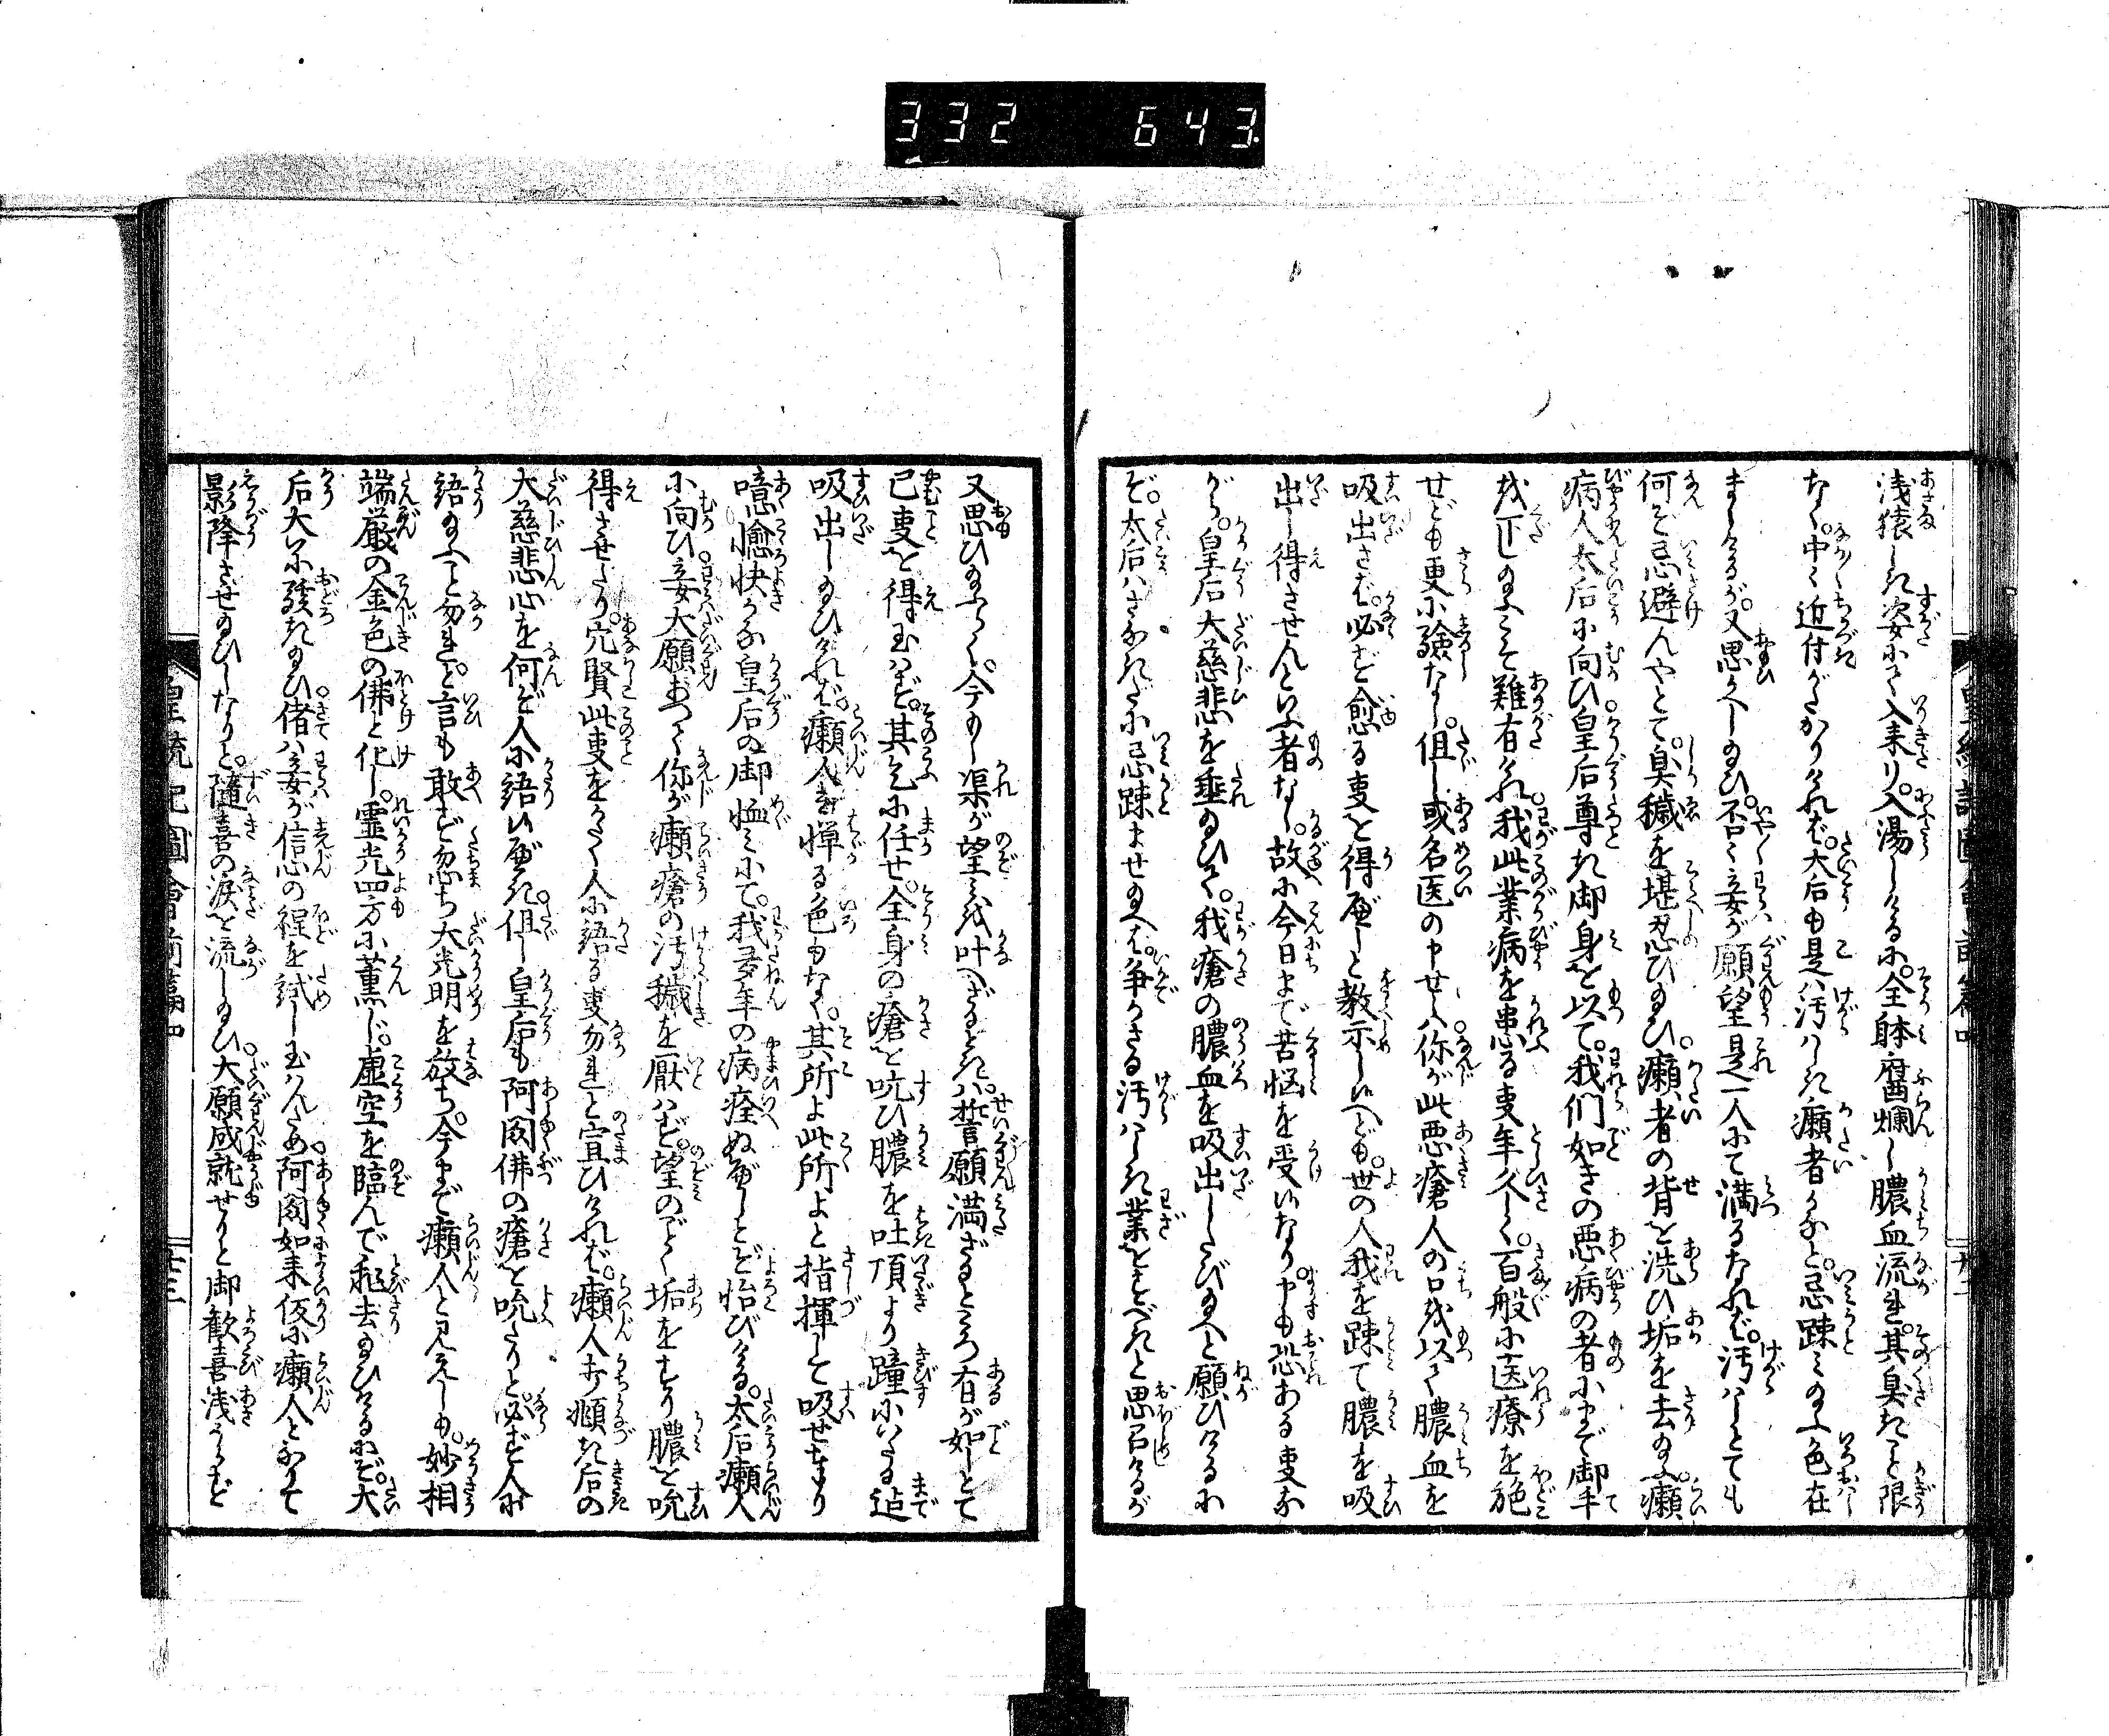 332 643
浅猿しき姿にて入来り。入湯しけるに。全躰腐爛し膿血流れ。其臭きこと限
なく。中々近付がたかりければ。太后も是は汚はしき癩者かなと。忌踈み給ふ色在
ましけるが。又思かへし給ひ。否々妾が願望是一人にて満るなれば。汚はしとても
何ぞ忌避んやとて。臭穢を堪忍び給ひ。癩者の背を洗ひ垢を去給ふ。癩
病人太后に向ひ皇后尊き御身を以て。我們如きの悪病の者にまで御手
を下し給ふこそ難有けれ。我此業病を患る事年久しく。百般に医療を施
せども更に験なし。但し或名医の申せしは。你が此悪瘡人の口を以て膿血を
吸出さば。必ず愈る事を得べしと教示しいへども。世の人我を踈て膿を吸
出し得させんといふ者なし。故に今日まで苦悩を受いなり。申も恐ある事な
がら。皇后大慈悲を垂給ひて。我瘡の膿血を吸出したび給へと願ひけるに
ぞ。太后はさなきだに忌踈ませ給へば。争かさる汚はしき業をすべきと思召けるが
又思ひ給ふやう。今もし渠が望を叶へざるときは。誓願満ざるところ有が如しとて
已事を得玉はず。其乞に任せ。全身の瘡を吮ひ膿を吐頂より踵にいたる迠
吸出し給ひければ。癩人さして憚る色もなく。其所よ此所よと指揮して吸せまゐり
噫愉快かな皇后の御恤みにて。我多年の病痊ぬべしとぞ怡びける。太后癩人
に向ひ妾大願あつて你が癩瘡の汚穢を厭はず。望のごとく垢をすり膿を吮
得させたり。穴賢此事をかたく人に語る事勿れと宣ひければ。癩人打頷き后の
大慈悲心を何ぞ人に語いべき。但し皇后も阿閦佛の瘡を吮たりと。必ず人に
語給ふこと勿れ。と言も敢ず忽ち大光明を放ち。今まで癩人と見えしも。妙相
端厳の金色の佛と化し。霊光四方に薫じ。虚空を臨んで飛去給ひけるにぞ。大
后大に驚き給ひ偖は妾が信心の程を試し玉はんため。阿閦如来仮に癩人となりて
影降させ給ひしなりと。随喜の涙を流し給ひ。大願成就せりと御歓喜浅からず
皇統記圖會前篇四